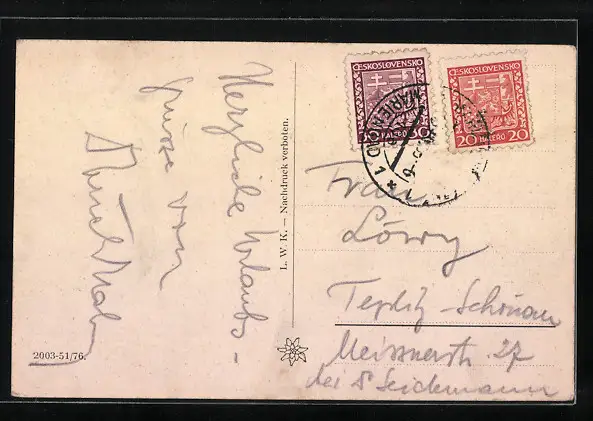 Herzliche Urlaubs-
grüsse von
L. W. K. — Nachdruck verboten.
2003-51/76.
ČESKOSLOVENSKO
50 HALÉŘŮ 50
ČESKOSLOVENSKO
20 HALÉŘŮ 20
MARIENBAD 1
Frau
Löwy
Teplitz-Schönau
Meissnerstr. 27
bei S. Seidemann